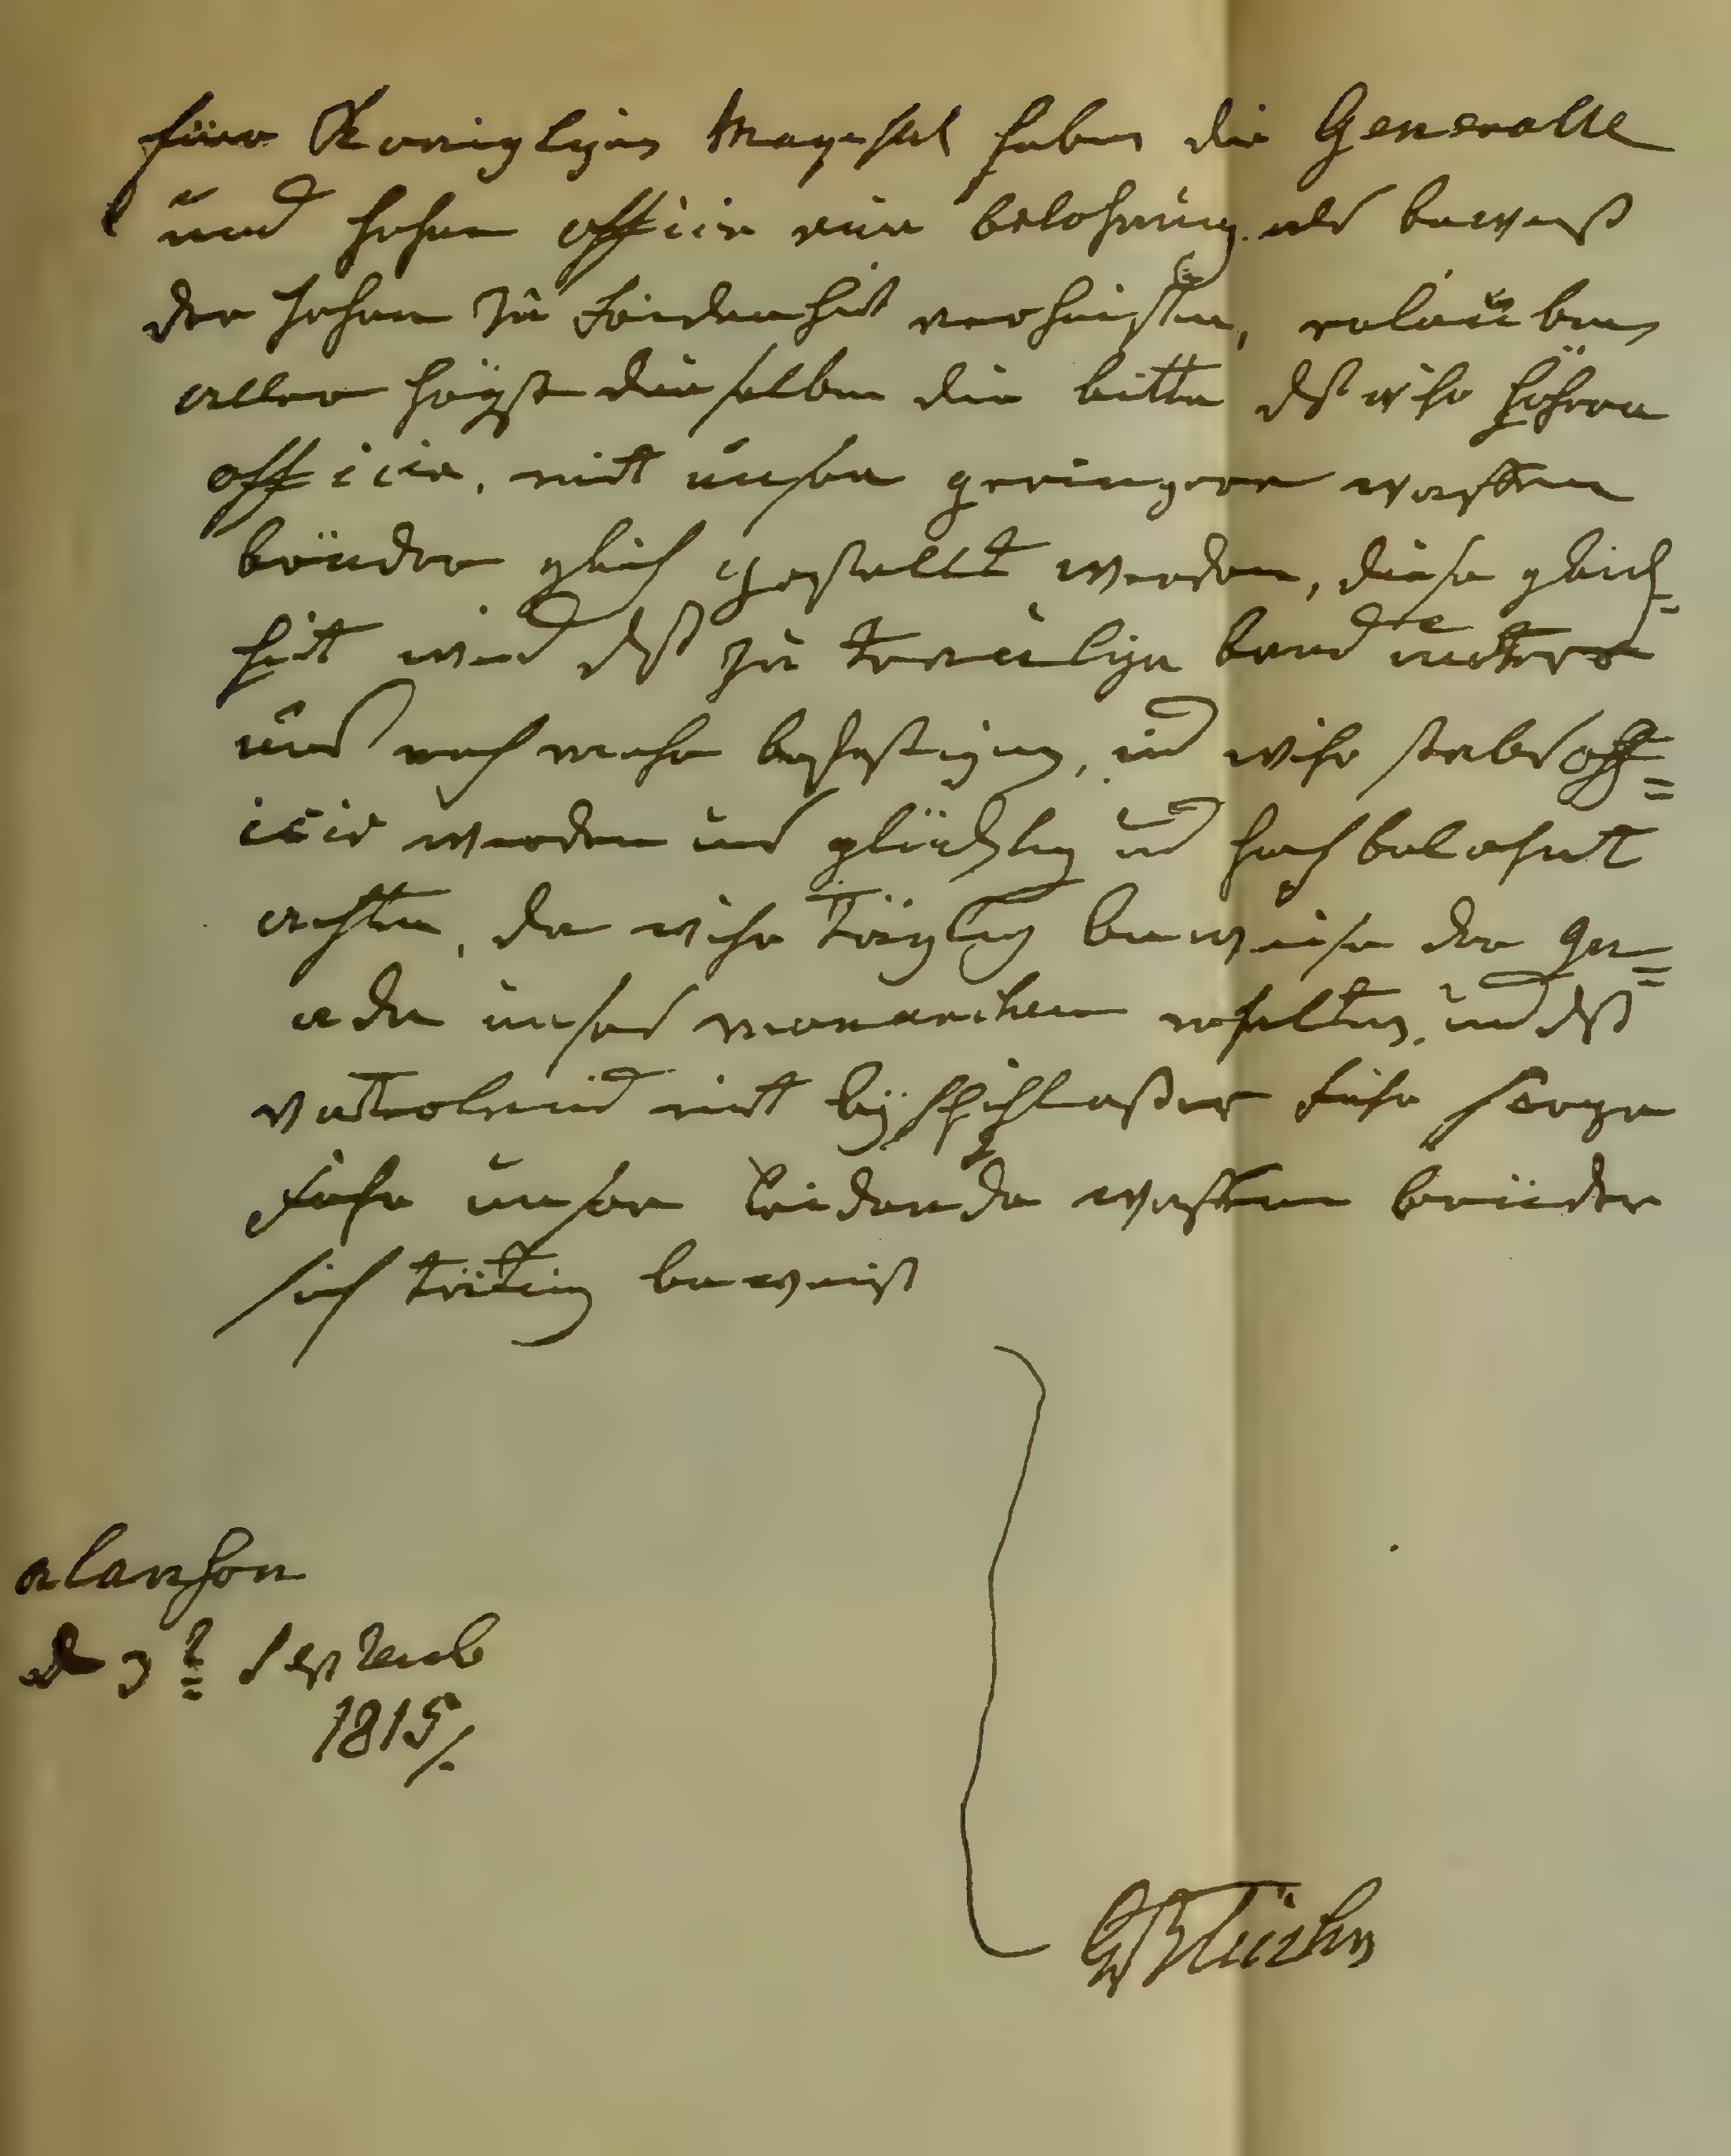 Euer Königligen Mayestät haben die Generalle
und hohen officir eine belohnung als beweiß
der hohen zu fridenheit verheißen, erlauben
aller högst die selben die bitte dß wihr höhere
officir, mit unsern geringern waffen
brüder gleich gestellt werden, diese gleich=
heit wird dß zu trauliche band unterr
uns noch mehr befestigen, und wihr stabs off=
icir werden uns glücklig und hoch belohnt
achten, da wihr täglig beweise der gn=
ade unsers monarchen erhalten, und dß
vatterland mit beyspihlloßer führ sorge
führ unsere leidende waffen brüder
sich tätig beweist
alanson
d 3t Septemb
1815/.
G Blücher